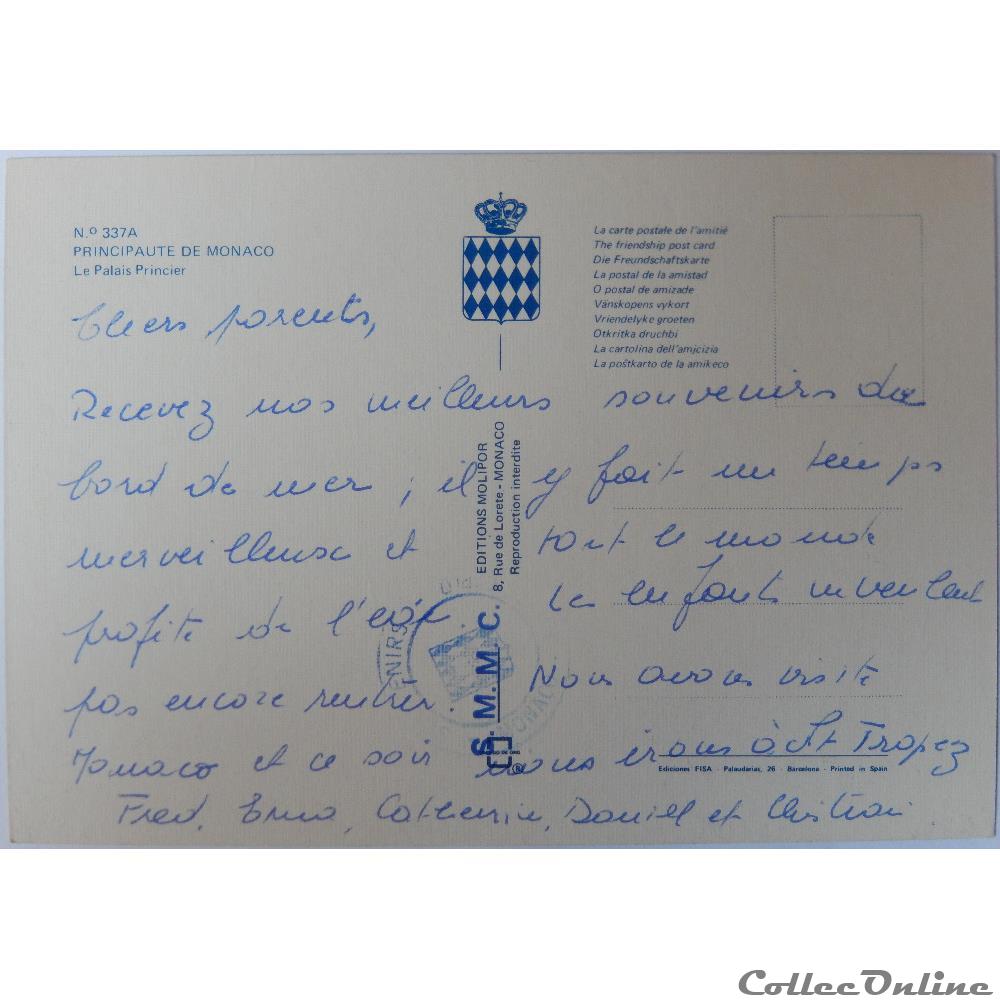 N.º 337A
PRINCIPAUTE DE MONACO
Le Palais Princier
La carte postale de l'amitié
The friendship post card
Die Freundschaftskarte
La postal de la amistad
O postal de amizade
Vänskopens vykort
Vriendelyke groeten
Otkritka druchbi
La cartolina dell'amjcizia
La poštkarto de la amikeco
Chers parents,
Recevez nos meilleurs souvenirs du
bord de mer ; il y fait un temps
merveilleux et tout le monde
profite de l'eau. Les enfants veulent
pas encore rentrer. Nous avons visité
Monaco et ce soir nous irons à St Tropez
Fred, Erna, Catherine, Daniel et Christian
EDITIONS MOLIPOR
8, Rue de Lorete - MONACO
Reproduction interdite
S. M. M. C.
ENIRS
MONACO
Ediciones FISA - Palaudarias, 26 - Barcelona - Printed in Spain
CollecOnline